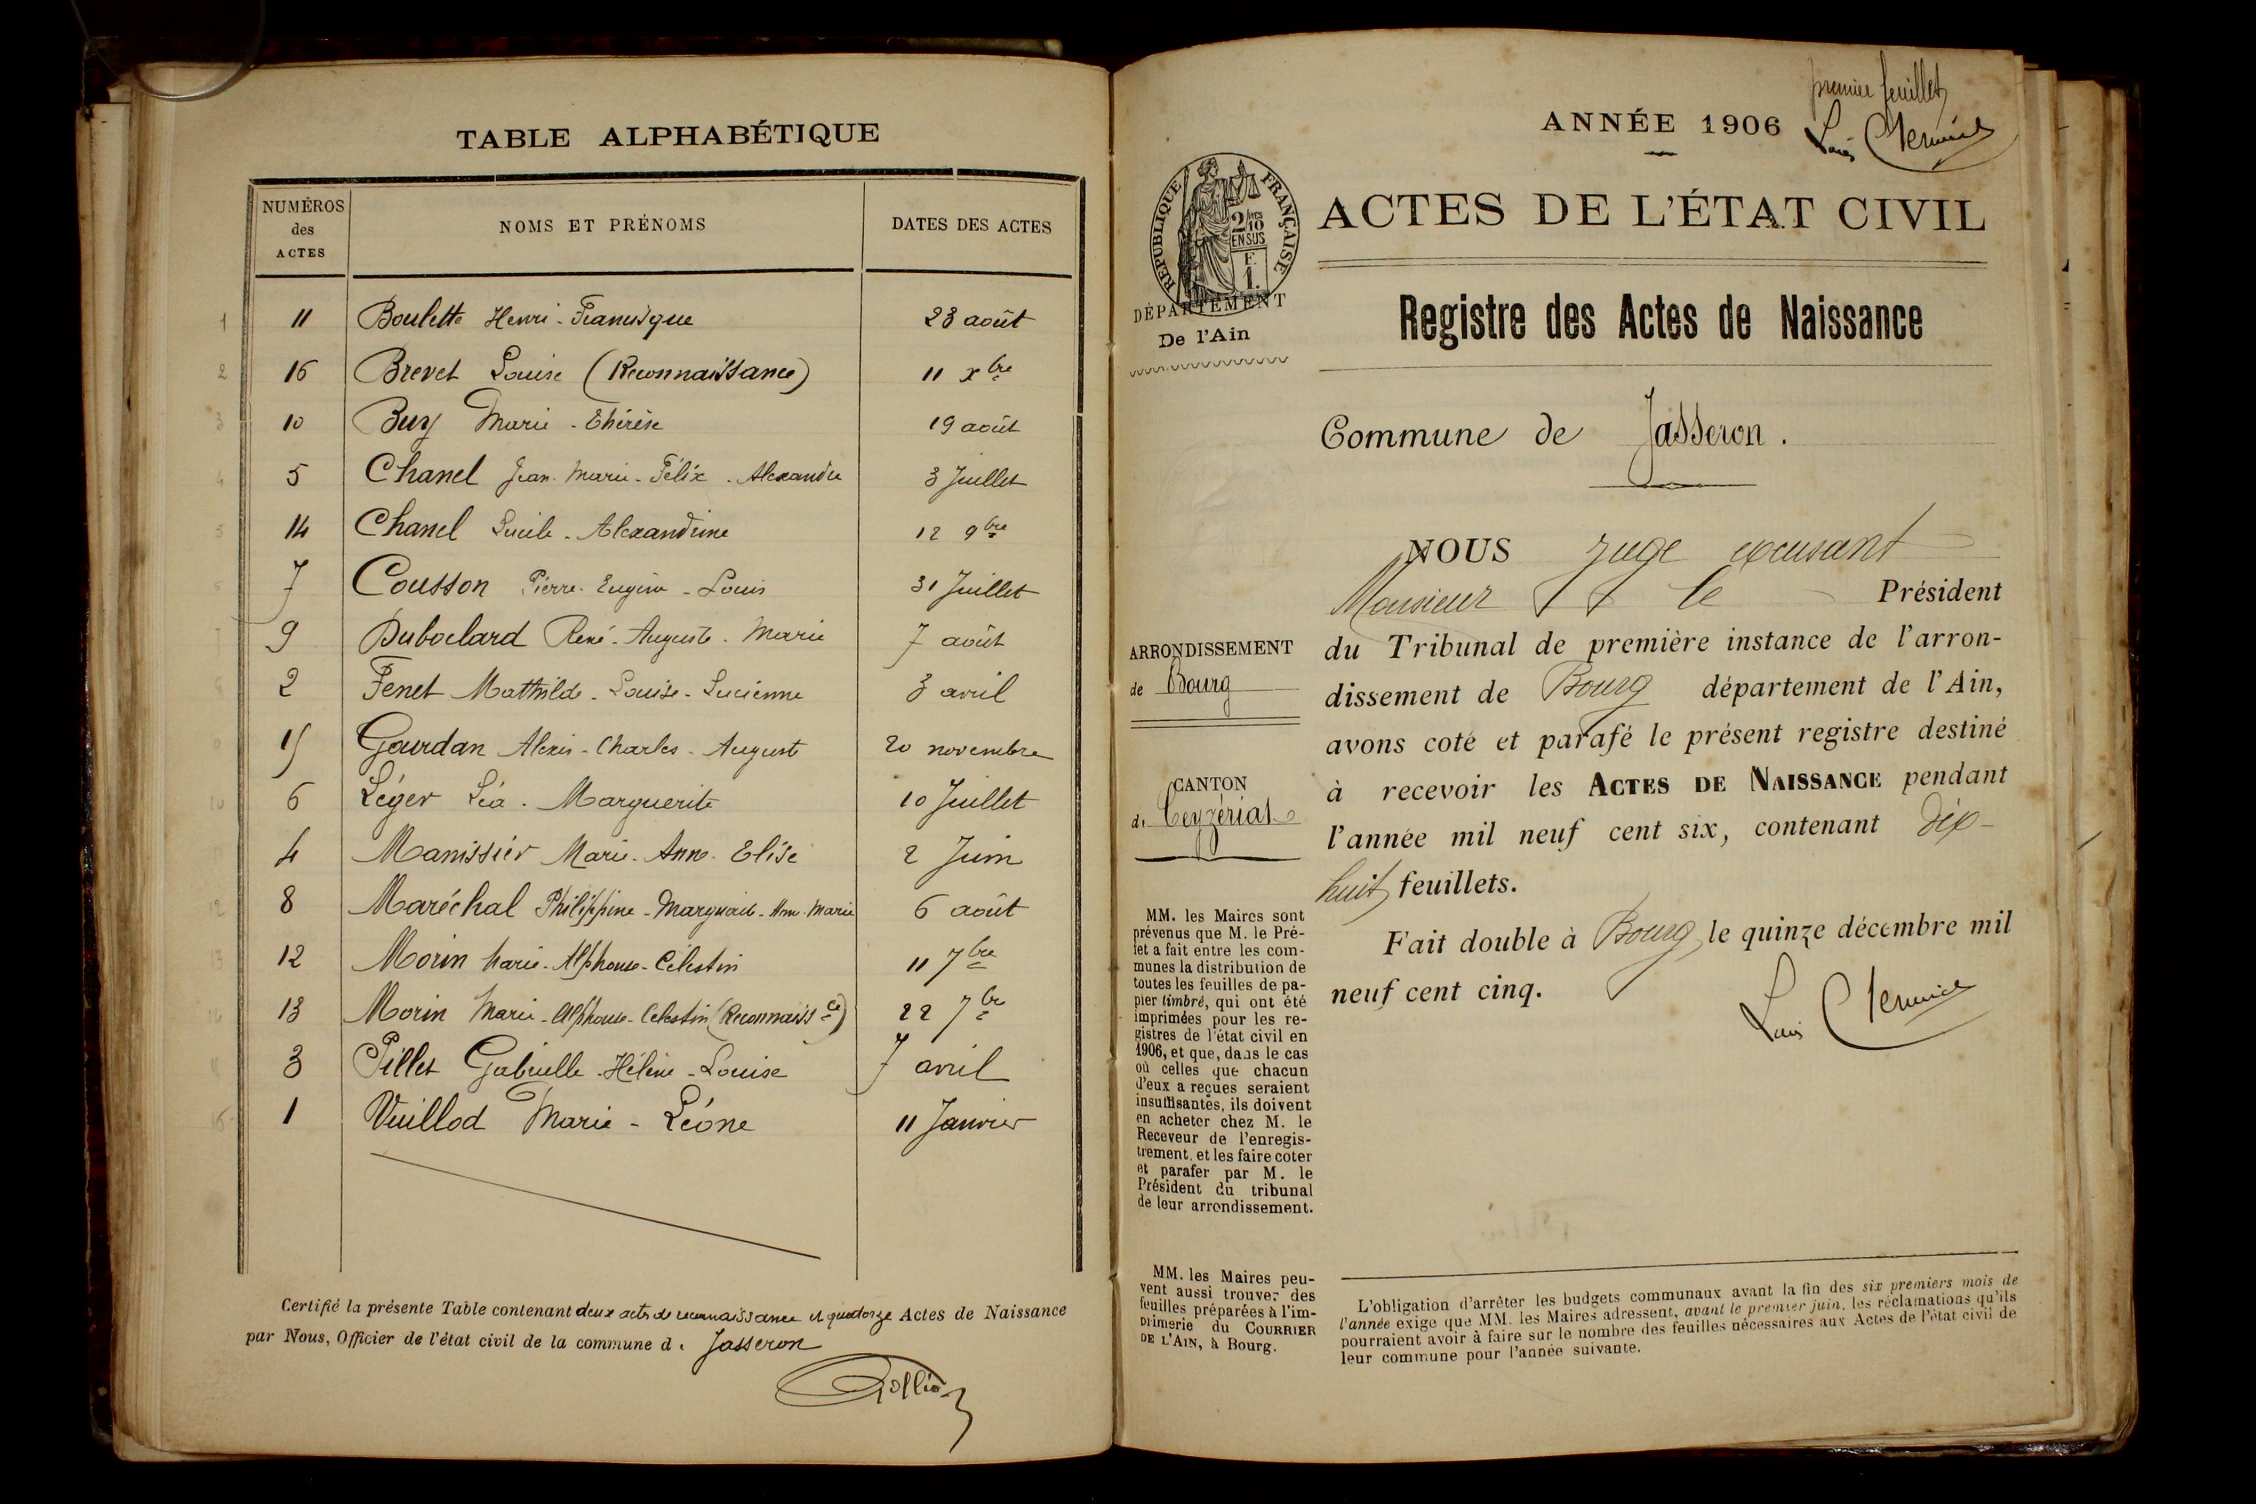 TABLE ALPHABÉTIQUE
NUMÉROS des ACTES
NOMS ET PRÉNOMS
DATES DES ACTES
11 Boulette Henri - Franisque 23 août
16 Brevet Louise (Reconnaissance) 11 xbre
10 Buy Marie - Thérèse 19 août
5 Chanel Jean - Marie - Félix - Alexandre 3 Juillet
14 Chanel Lucile - Alexandrine 12 9bre
7 Cousson Pierre - Eugène - Louis 31 Juillet
9 Duboclard René - Auguste - Marie 7 août
2 Fenet Mathilde - Louise - Lucienne 3 avril
15 Gourdan Alexis - Charles - August 20 novembre
6 Léger Léa - Marguerite 10 Juillet
4 Manissier Marie - Anne - Elise 2 Juin
8 Maréchal Philippine - Marguerite - Marie 6 août
12 Morin Marie - Alphonse - Célestin 11 7bre
13 Morin Marie - Alphonse - Célestin (Reconnaissce) 22 7bre
3 Pillet Gabrielle - Hélène - Louise 7 avril
1 Vuillod Marie - Léone 11 Janvier
Certifié la présente Table contenant deux actes de reconnaissance et quatorze Actes de Naissance
par Nous, Officier de l'état civil de la commune de Jasseron
premier feuillet
ANNÉE 1906
RÉPUBLIQUE FRANÇAISE
2/10
EN SUS
F.
1.
DÉPARTEMENT
De l'Ain
ACTES DE L'ÉTAT CIVIL
Registre des Actes de Naissance
Commune de Jasseron.
NOUS juge excusant
Monsieur le Président
du Tribunal de première instance de l'arron-
dissement de Bourg département de l'Ain,
avons coté et parafé le présent registre destiné
à recevoir les ACTES DE NAISSANCE pendant
l'année mil neuf cent six, contenant dix-
huit feuillets.
Fait double à Bourg, le quinze décembre mil
neuf cent cinq.
ARRONDISSEMENT
de Bourg
CANTON
de Ceyzériat
MM. les Maires sont
prévenus que M. le Pré-
fet a fait entre les com-
munes la distribution de
toutes les feuilles de pa-
pier timbré, qui ont été
imprimées pour les re-
gistres de l'état civil en
1906, et que, dans le cas
où celles que chacun
d'eux a reçues seraient
insuffisantes, ils doivent
en acheter chez M. le
Receveur de l'enregis-
trement, et les faire coter
et parafer par M. le
Président du tribunal
de leur arrondissement.
MM. les Maires peu-
vent aussi trouver des
feuilles préparées à l'im-
primerie du COURRIER
DE L'AIN, à Bourg.
L'obligation d'arrêter les budgets communaux avant la fin des six premiers mois de
l'année exige que MM. les Maires adressent, avant le premier juin, les réclamations qu'ils
pourraient avoir à faire sur le nombre des feuilles nécessaires aux Actes de l'état civil de
leur commune pour l'année suivante.